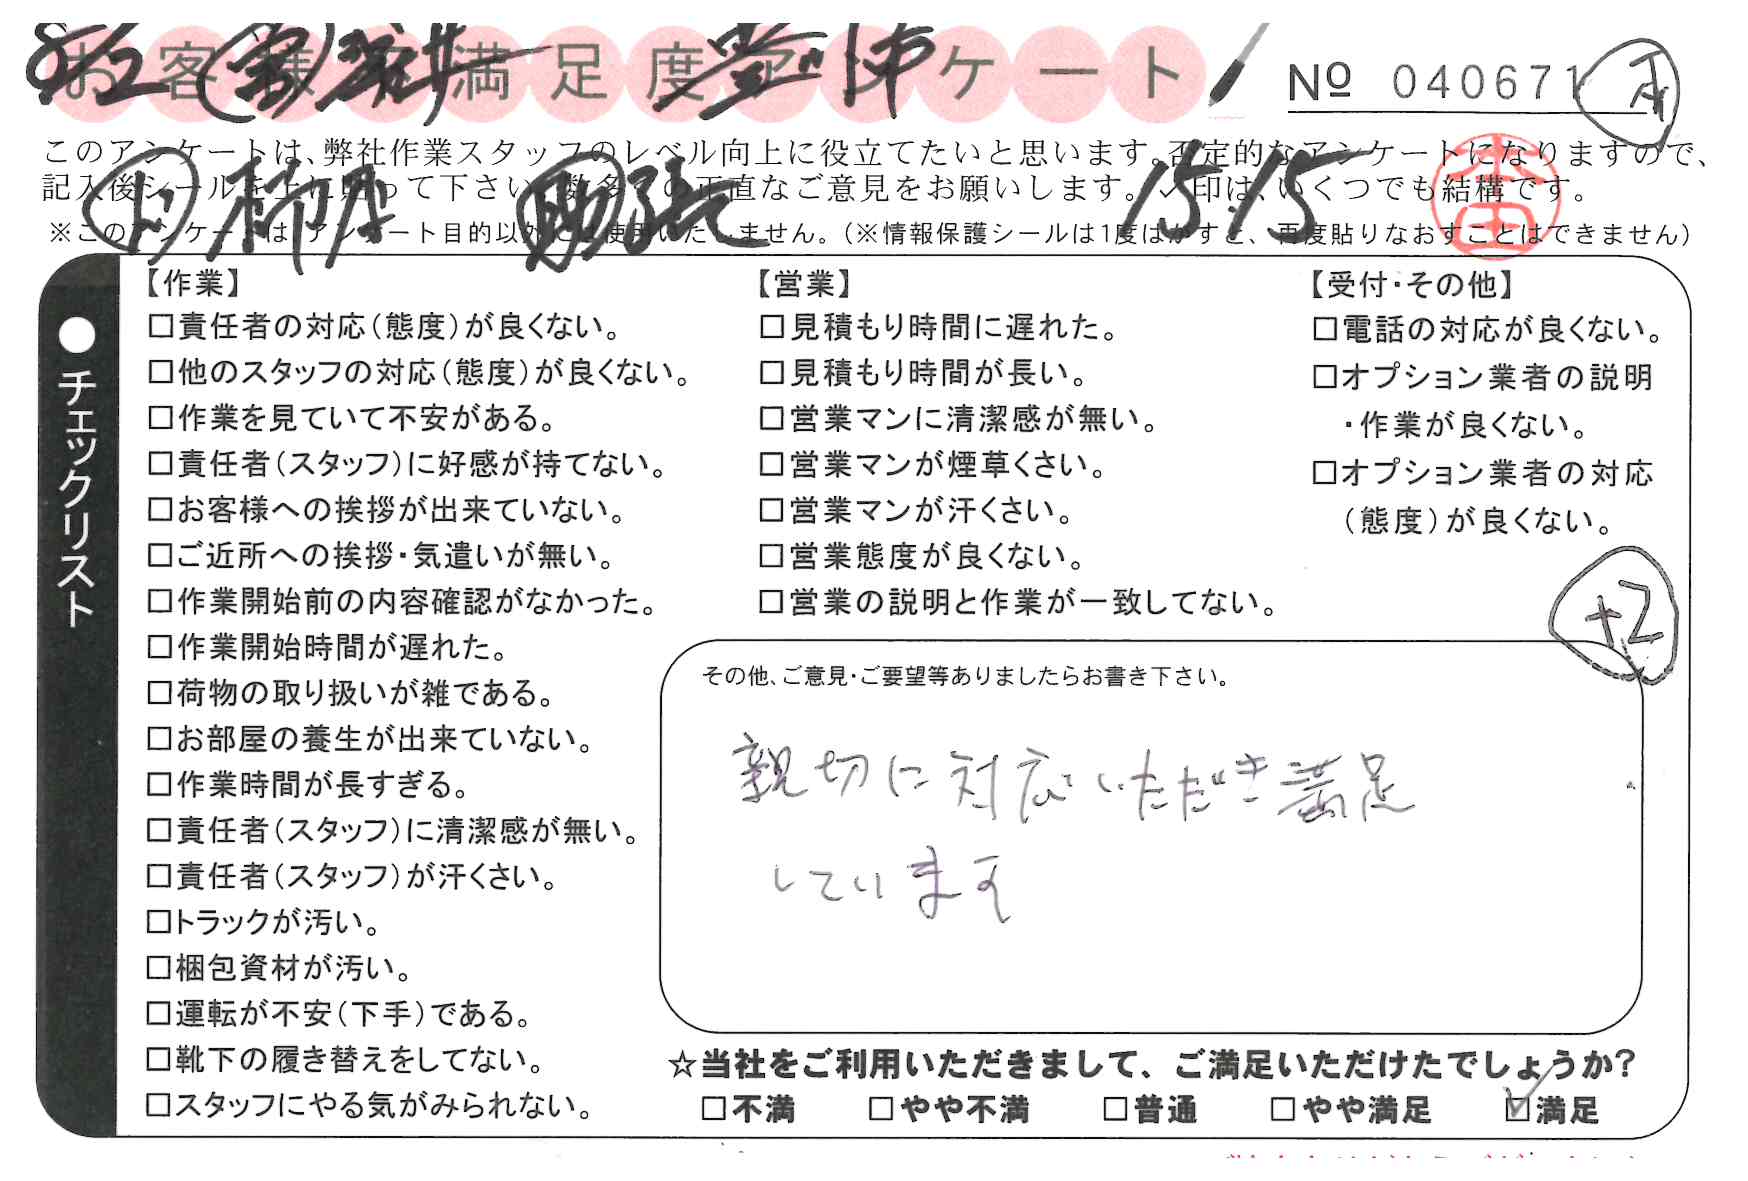 お客様満足度アンケート
№ 040671
このアンケートは、弊社作業スタッフのレベル向上に役立てたいと思います。否定的なアンケートになりますので、
記入後シールを上に貼って下さい。数多くの正直なご意見をお願いします。✓印は、いくつでも結構です。
15:15
※このアンケートは、アンケート目的以外には使用いたしません。(※情報保護シールは1度はがすと、再度貼りなおすことはできません)
●チェックリスト
【作業】
□責任者の対応(態度)が良くない。
□他のスタッフの対応(態度)が良くない。
□作業を見ていて不安がある。
□責任者(スタッフ)に好感が持てない。
□お客様への挨拶が出来ていない。
□ご近所への挨拶・気遣いが無い。
□作業開始前の内容確認がなかった。
□作業開始時間が遅れた。
□荷物の取り扱いが雑である。
□お部屋の養生が出来ていない。
□作業時間が長すぎる。
□責任者(スタッフ)に清潔感が無い。
□責任者(スタッフ)が汗くさい。
□トラックが汚い。
□梱包資材が汚い。
□運転が不安(下手)である。
□靴下の履き替えをしてない。
□スタッフにやる気がみられない。
【営業】
□見積もり時間に遅れた。
□見積もり時間が長い。
□営業マンに清潔感が無い。
□営業マンが煙草くさい。
□営業マンが汗くさい。
□営業態度が良くない。
□営業の説明と作業が一致してない。
【受付・その他】
□電話の対応が良くない。
□オプション業者の説明
・作業が良くない。
□オプション業者の対応
(態度)が良くない。
+2
その他、ご意見・ご要望等ありましたらお書き下さい。
親切に対応いただき満足
しています
☆当社をご利用いただきまして、ご満足いただけたでしょうか?
□不満 □やや不満 □普通 □やや満足 ☑満足